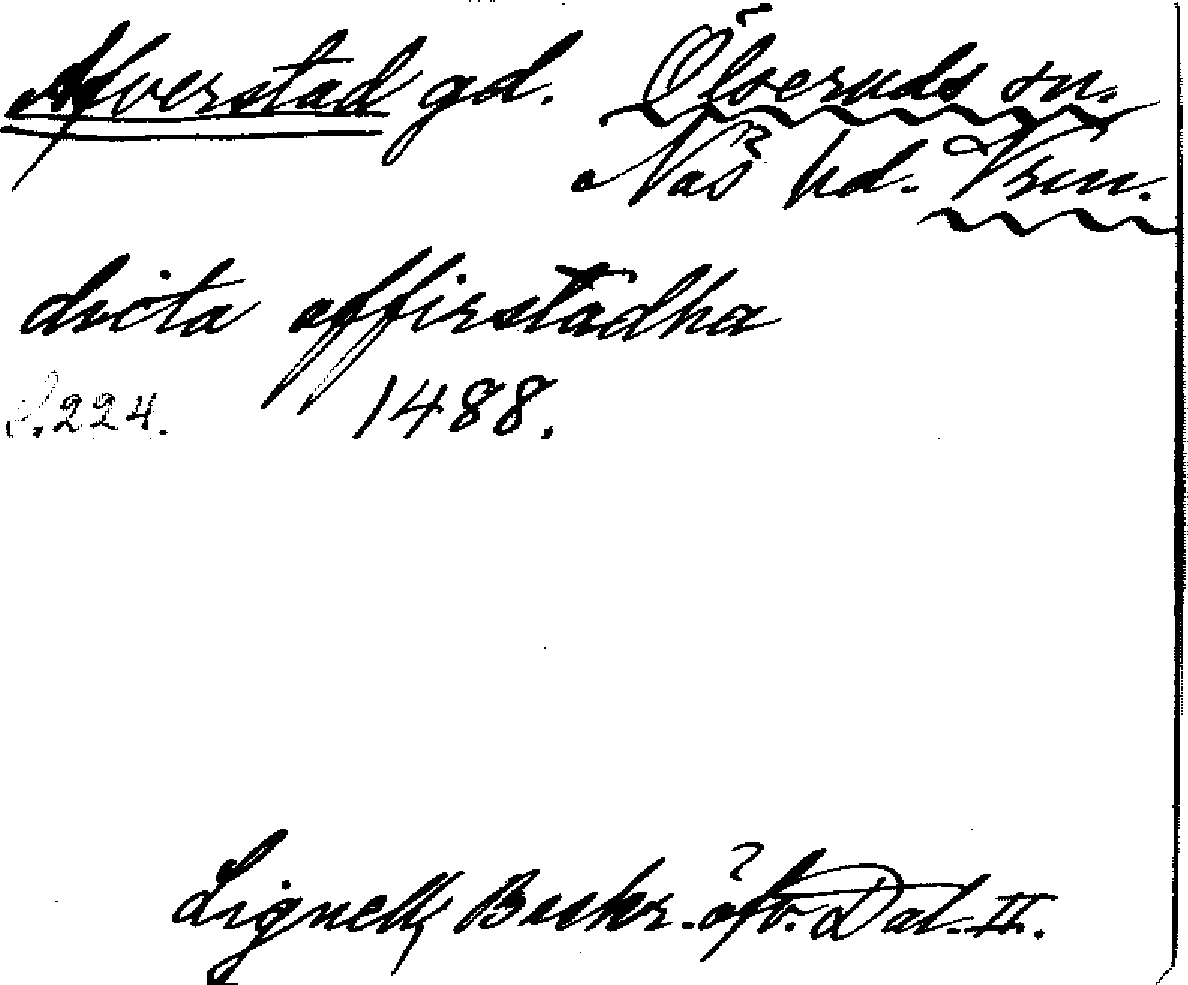 Afverstad gd. Ölseruds sn.
Näs hd. Vrm.
dicta offirstadha
S. 224. 1488.
Lignell, Beskr. öfv. Dal. II.